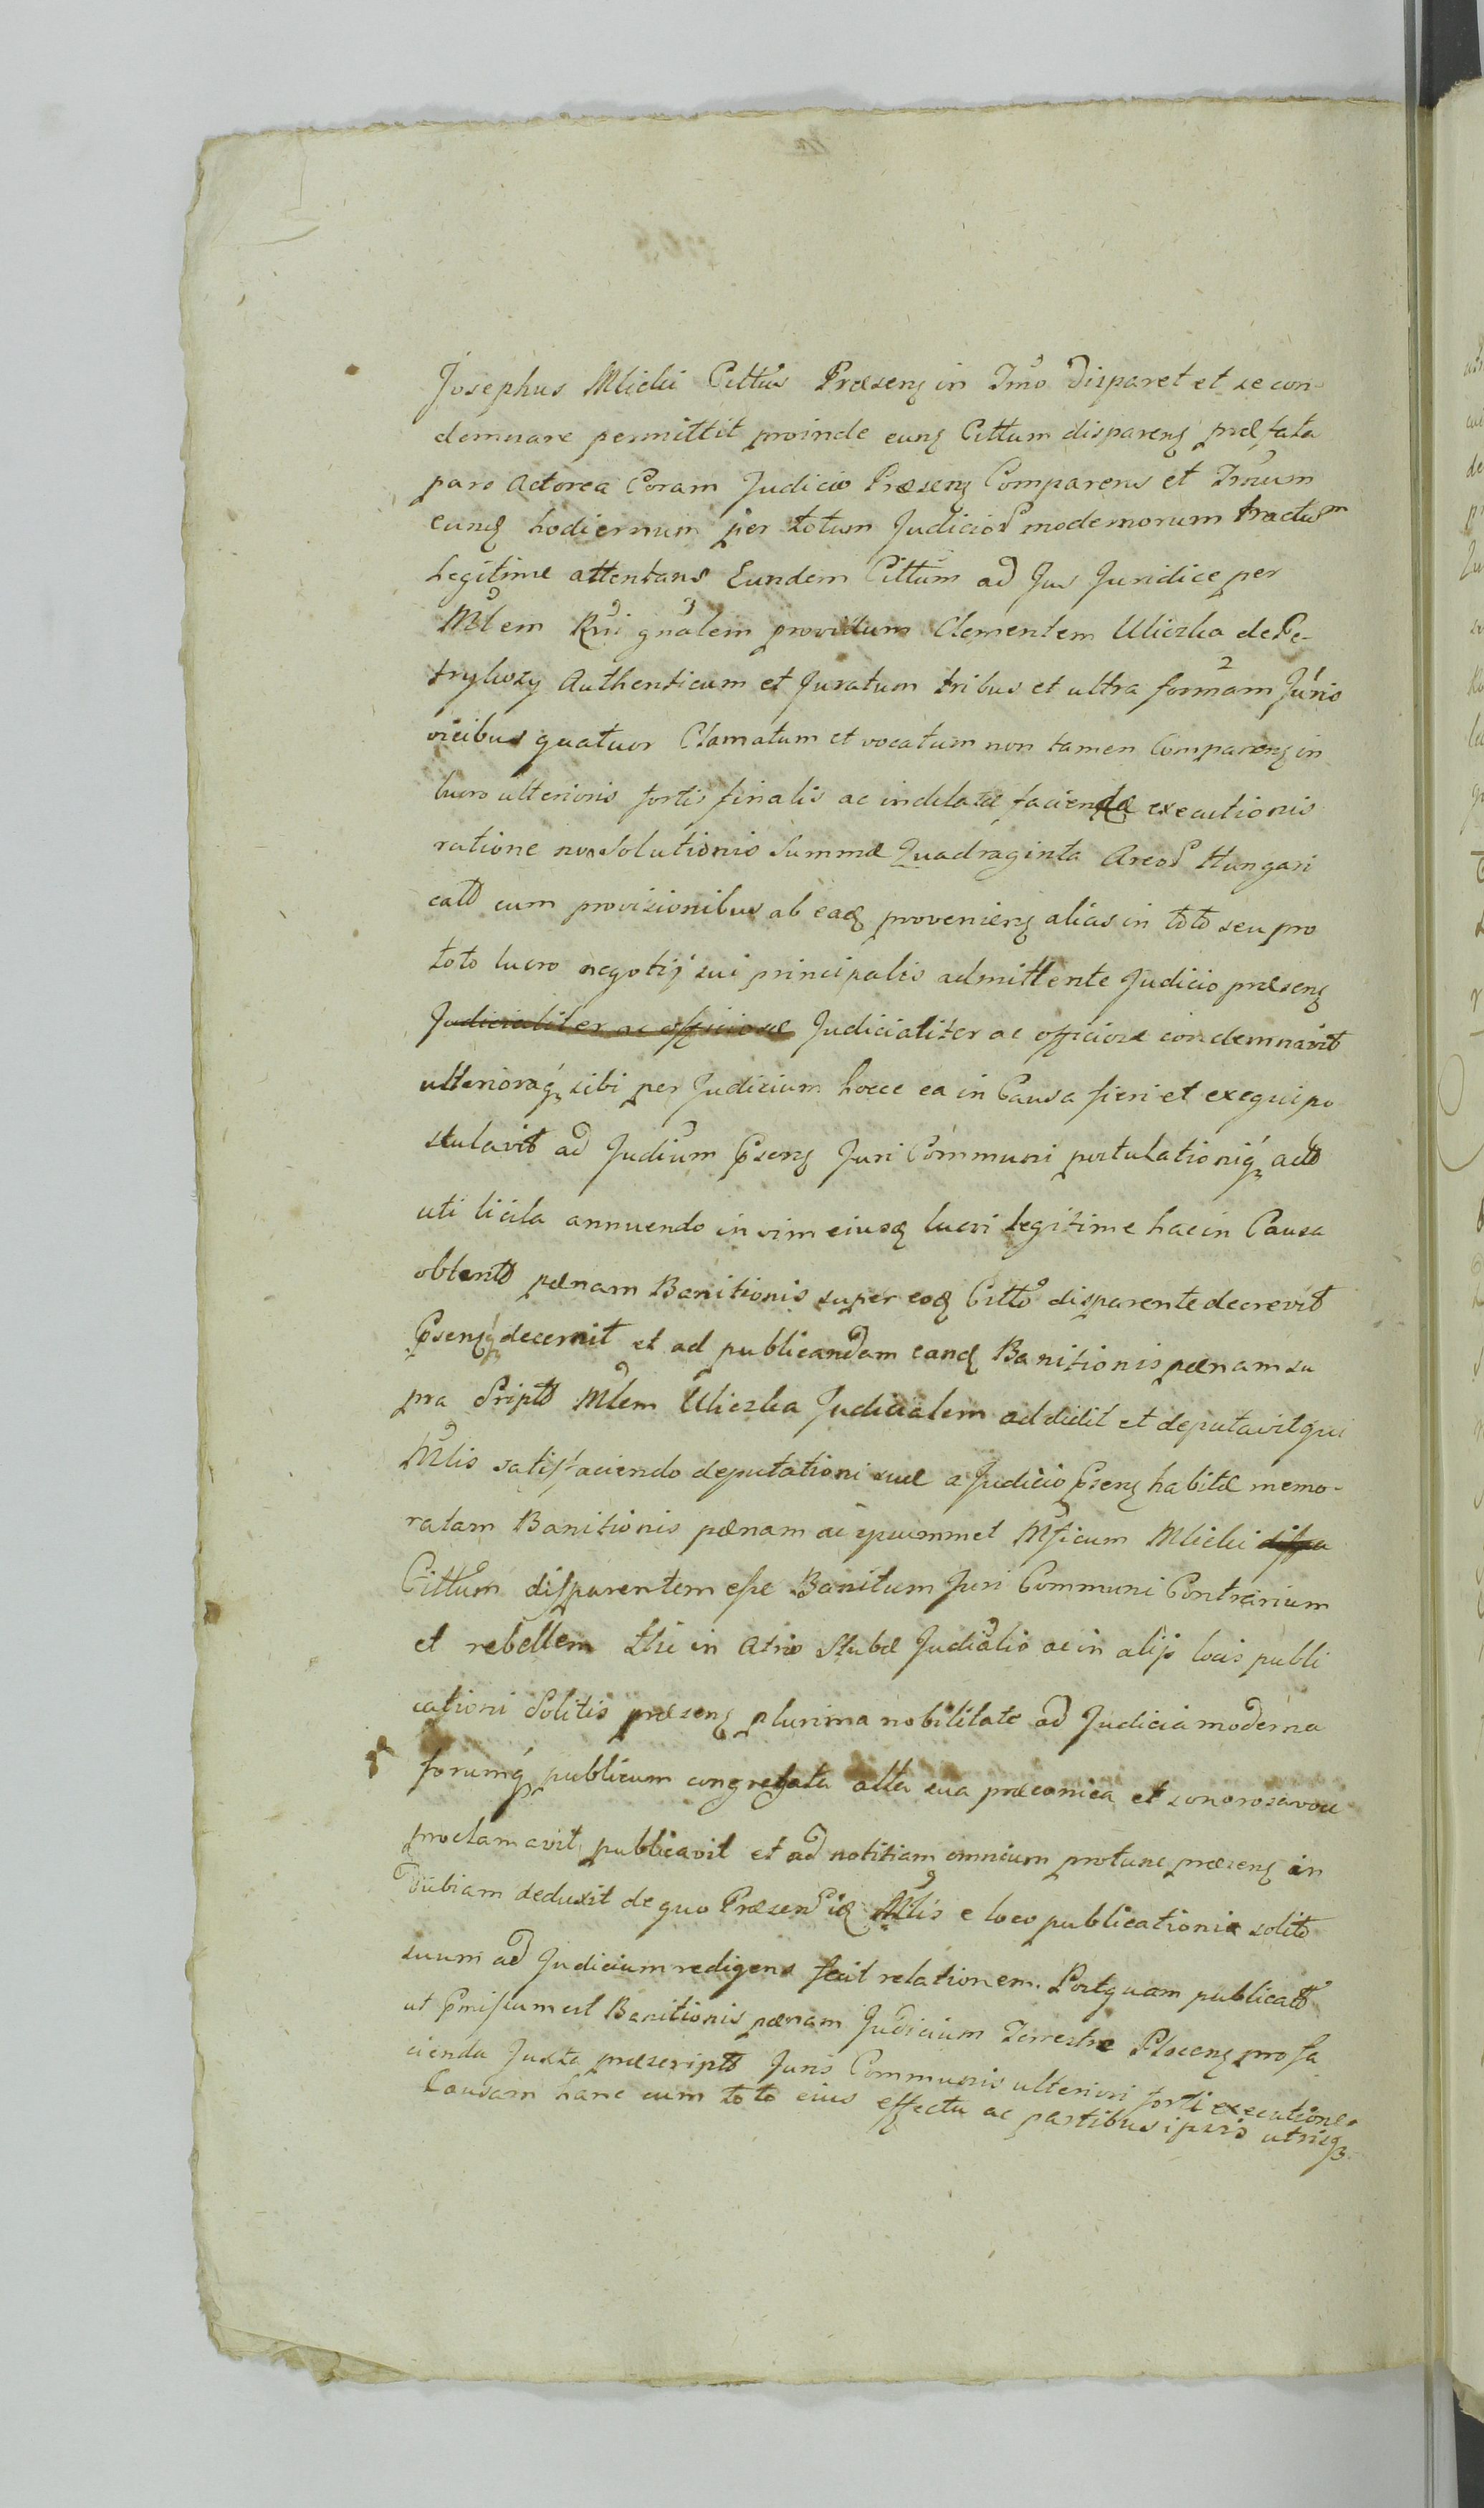 Josephus Mlicki Cittus Præsenς in Tmo disparet et se con-
demnare permittit proinde eunς Cittum disparenς præfata
pars Actorea Coram Judicio Præsenς Comparens et Tmum
eunς hodiernum per totum Judicior modernorum tractum
Legitime attentans Eundem Cittum ad Jus Juridice per
Mlem Rni gnalem providum Clementem Uliczka de Pe-
trykozy Authenticum et Juratum tribus et ultra formam Juris
vicibus quatuor Clamatum et vocatum non tamen Comparenς in
lucro ulterioris fortis finalis ac indilatæ faciendæ executionis
ratione non Solutionis Summæ Quadraginta Areor Hungari
catt cum provisionibus ab eaς provenienς alias in toto seu pro
toto lucro negotij sui principalis admittente Judicio præsenς
Judicialiter ac officiose Judicialiter ac officiose condemnavit
ulterioraq sibi per Judicium hocce ea in Causa fieri et exequi po
stulavit ad Judium Psenς Juri Communi postulationiq act
uti licita annuendo in vim eiusς lucri legitime hac in Causa
obtent pænam Banitionis super eoς Citto disparente decrevit
Psenςq decernit et ad publicandam eanς Banitionis pænam su
pra Sript Mlem Uliczka Judicialem addidit et deputavit qui
Mlis satisfaciendo deputationi suæ a Judicio Psenς habitæ memo-
ratam Banitionis pænam ac ipsummet Mficum Mlicki dispa
Cittum disparentem esse Banitum Juri Communi Contrarium
et rebellem hic in Atrio Stubæ Judialis ac in alijs locis publi
cationi Solitis præsenς plurima nobilitate ad Judicia moderna
forumq publicum congregata alta sua præconica et sonorosa voce
proclamavit publicavit et ad notitiam omnium protunc præsenς in
dubiam deduxit de quo Præsen iς Mlis e loco publicationis solito
suum ad Judicium redigens fecit relationem. Postquam publicatt
ut Pmissum est Banitionis pænam Judicium Terrestre Plocenς pro fa
cienda Juxta præscript Juris Communis ulteriori forti executione
Causam hanc cum toto eius effectu ac partibus ipsis utrisq